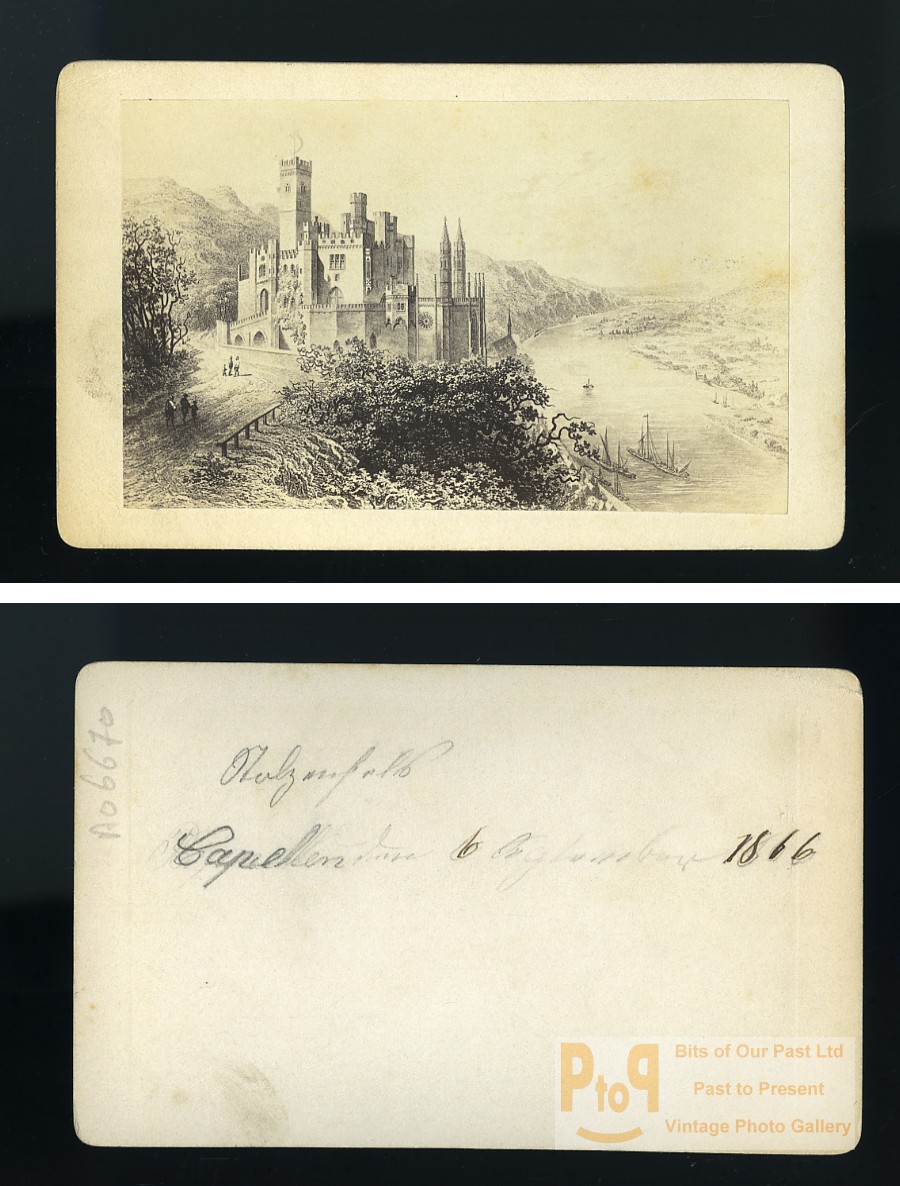 A06670
Stolzenfels
Capellen den 6 September 1866
PtoP
Bits of Our Past Ltd
Past to Present
Vintage Photo Gallery